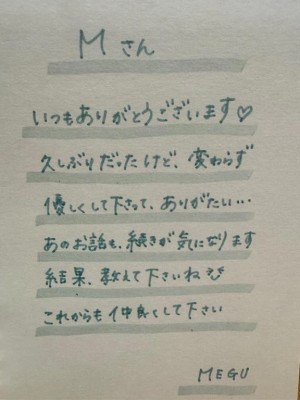 Mさん
いつもありがとうございます♡
久しぶりだったけど、変わらず
優しくして下さって、ありがたい…
あのお話も、続きが気になります
結果、教えて下さいね
これからも仲良くして下さい
MEGU